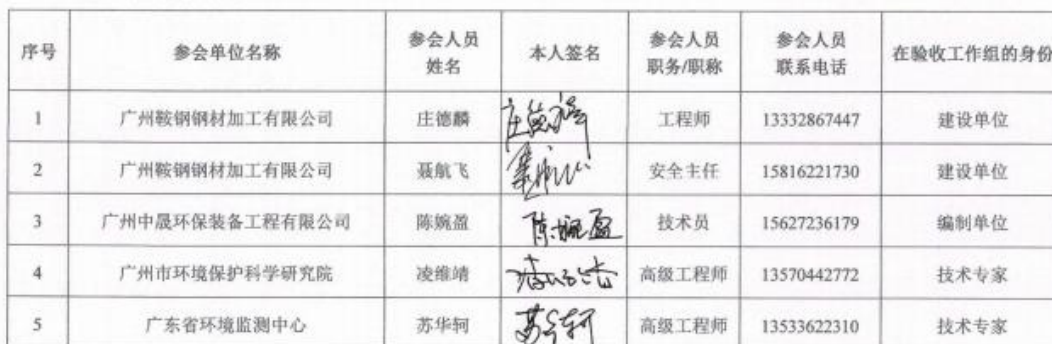 序号 参会单位名称 参会人员姓名 本人签名 参会人员职务/职称 参会人员联系电话 在验收工作组的身份
1 广州鞍钢钢材加工有限公司 庄德麟 庄德麟 工程师 13332867447 建设单位
2 广州鞍钢钢材加工有限公司 聂航飞 安全主任 15816221730 建设单位
3 广州中晟环保装备工程有限公司 陈婉盈 陈婉盈 技术员 15627236179 编制单位
4 广州市环境保护科学研究院 凌维靖 高级工程师 13570442772 技术专家
5 广东省环境监测中心 苏华轲 苏华轲 高级工程师 13533622310 技术专家